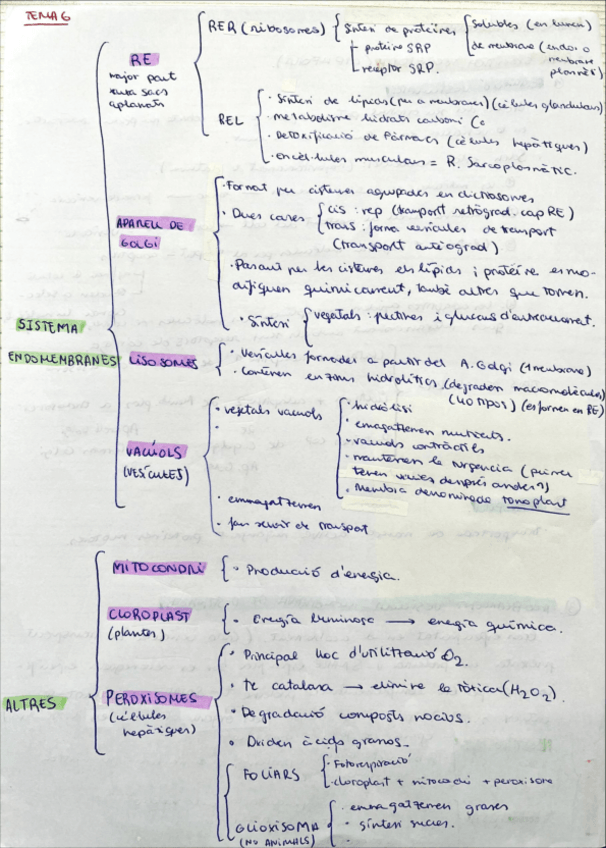 TEMA 6
RER (ribosomes)
Síntesi de proteïnes
proteïna SRP
receptor SRP.
Solubles (en lumen)
de membrana (endo o
membrana
plasmàt)
RE
major part
xarxa sacs
aplanats
REL
· Síntesi de lípids (per a membranes) (cèl·lules glandulars)
· metabolisme hidrats carboni
· Detoxificació de fàrmacs (cèl·lules hepàtiques)
· en cèl·lules musculars = R. Sarcoplasmàtic.
APARELL DE
GOLGI
· Format per cisternes agrupades en dictiosomes
· Dues cares
cis: rep (transport retrògrad. cap RE)
trans: forma vesícules de transport
(transport anterògrad)
· Passant per les cisternes els lípids i proteïnes es mo-
difiquen químicament, també altres que tornen.
· Síntesi
vegetals: pectines i
SISTEMA
ENDOMEMBRANES
LISOSOMES
· Vesícules formades a partir del A. Golgi (1 membrana)
· Contenen enzims hidrolítics (degraden macromolècules)
(40 TIPOS) (es formen en RE)
VACÚOLS
(VESÍCULES)
· vegetals vacúols
·
· hidròlisi
· emmagatzemen nutrients.
· vacúols contràctils
· mantenen la turgència (
tenen varies després
· Membrana denominada tonoplast
· emmagatzemen
· fan servir de transport
MITOCONDRI
· Producció d'energia.
CLOROPLAST
(plantes)
· Energia lluminosa → energia química.
ALTRES
PEROXISOMES
(cèl·lules
hepàtiques)
· Principal lloc d'utilització O2.
· Té catalasa → elimina la tòxica (H2O2).
· Degradació composts nocius.
· Oxiden àcids grassos.
FOLIARS
· Fotorespiració
· cloroplast + mitocondri + peroxisoma
GLIOXISOMA
(NO ANIMALS)
· emmagatzemen grasses
· síntesi sucres.